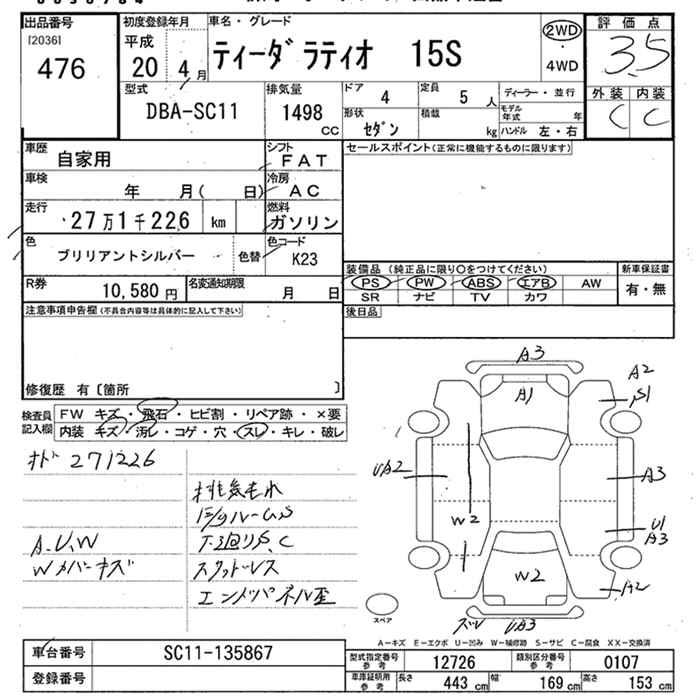 出品番号
[2036]
476
初度登録年月
平成
20 4月
車名・グレード
ティーダ ラティオ 15S
2WD
・
4WD
評価点
3.5
外装 内装
C C
型式
DBA-SC11
排気量
1498
cc
ドア
4
定員
5 人
形状
セダン
積載
kg
ディーラー・並行
モデル年式 年
ハンドル 左・右
車歴
自家用
シフト
FAT
車検
年 月( 日)
冷房
AC
走行
27万1千226 km
燃料
ガソリン
色
ブリリアントシルバー
色替
色コード
K23
R券
10,580 円
名変通知期限
月 日
セールスポイント(正常に機能するものに限ります)
装備品 (純正品に限り○をつけてください)
PS PW ABS エアB AW
SR ナビ TV カワ
新車保証書
有・無
後日品
注意事項申告欄(不具合内容等は具体的に記入して下さい)
修復歴 有〔箇所 〕
検査員記入欄
FW キズ・飛石・ヒビ割・リペア跡・×要
内装 キズ・汚レ・コゲ・穴・スレ・キレ・破レ
271226
排気もれ
A.U.W
下廻りS.C
Wカバーキズ
スタッドレス
エンジンパネル歪
A3
A1
A2
S1
UA2
A3
W2
U1
A3
W2
A2
UA3
スペア
A-キズ E-エクボ U-凹み W-補修跡 S-サビ C-腐食 XX-交換済
車台番号
SC11-135867
登録番号
型式指定番号参考
12726
類別区分番号参考
0107
車庫証明用参考
長さ 443 cm
幅 169 cm
高さ 153 cm